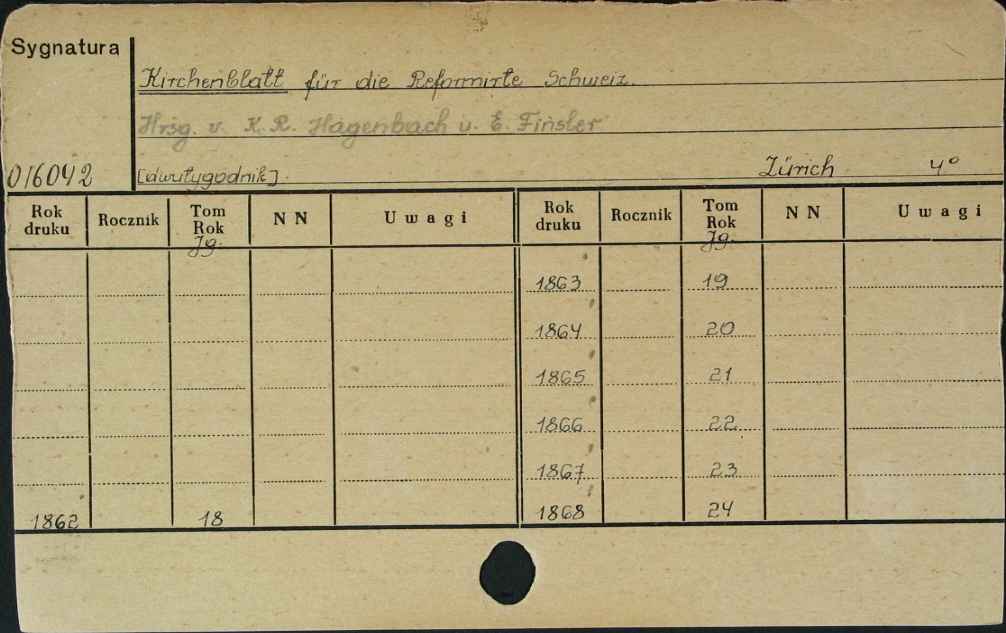 Sygnatura
Kirchenblatt für die Reformirte Schweiz.
Hrsg. v. K. R. Hagenbach u. E. Finsler
016042 [dwutygodnik]. Zürich 4°
Rok druku Rocznik Tom Rok NN Uwagi Rok druku Rocznik Tom Rok NN Uwagi
Jg. Jg.
1863 19
1864 20
1865 21
1866 22
1867 23
1862 18 1868 24